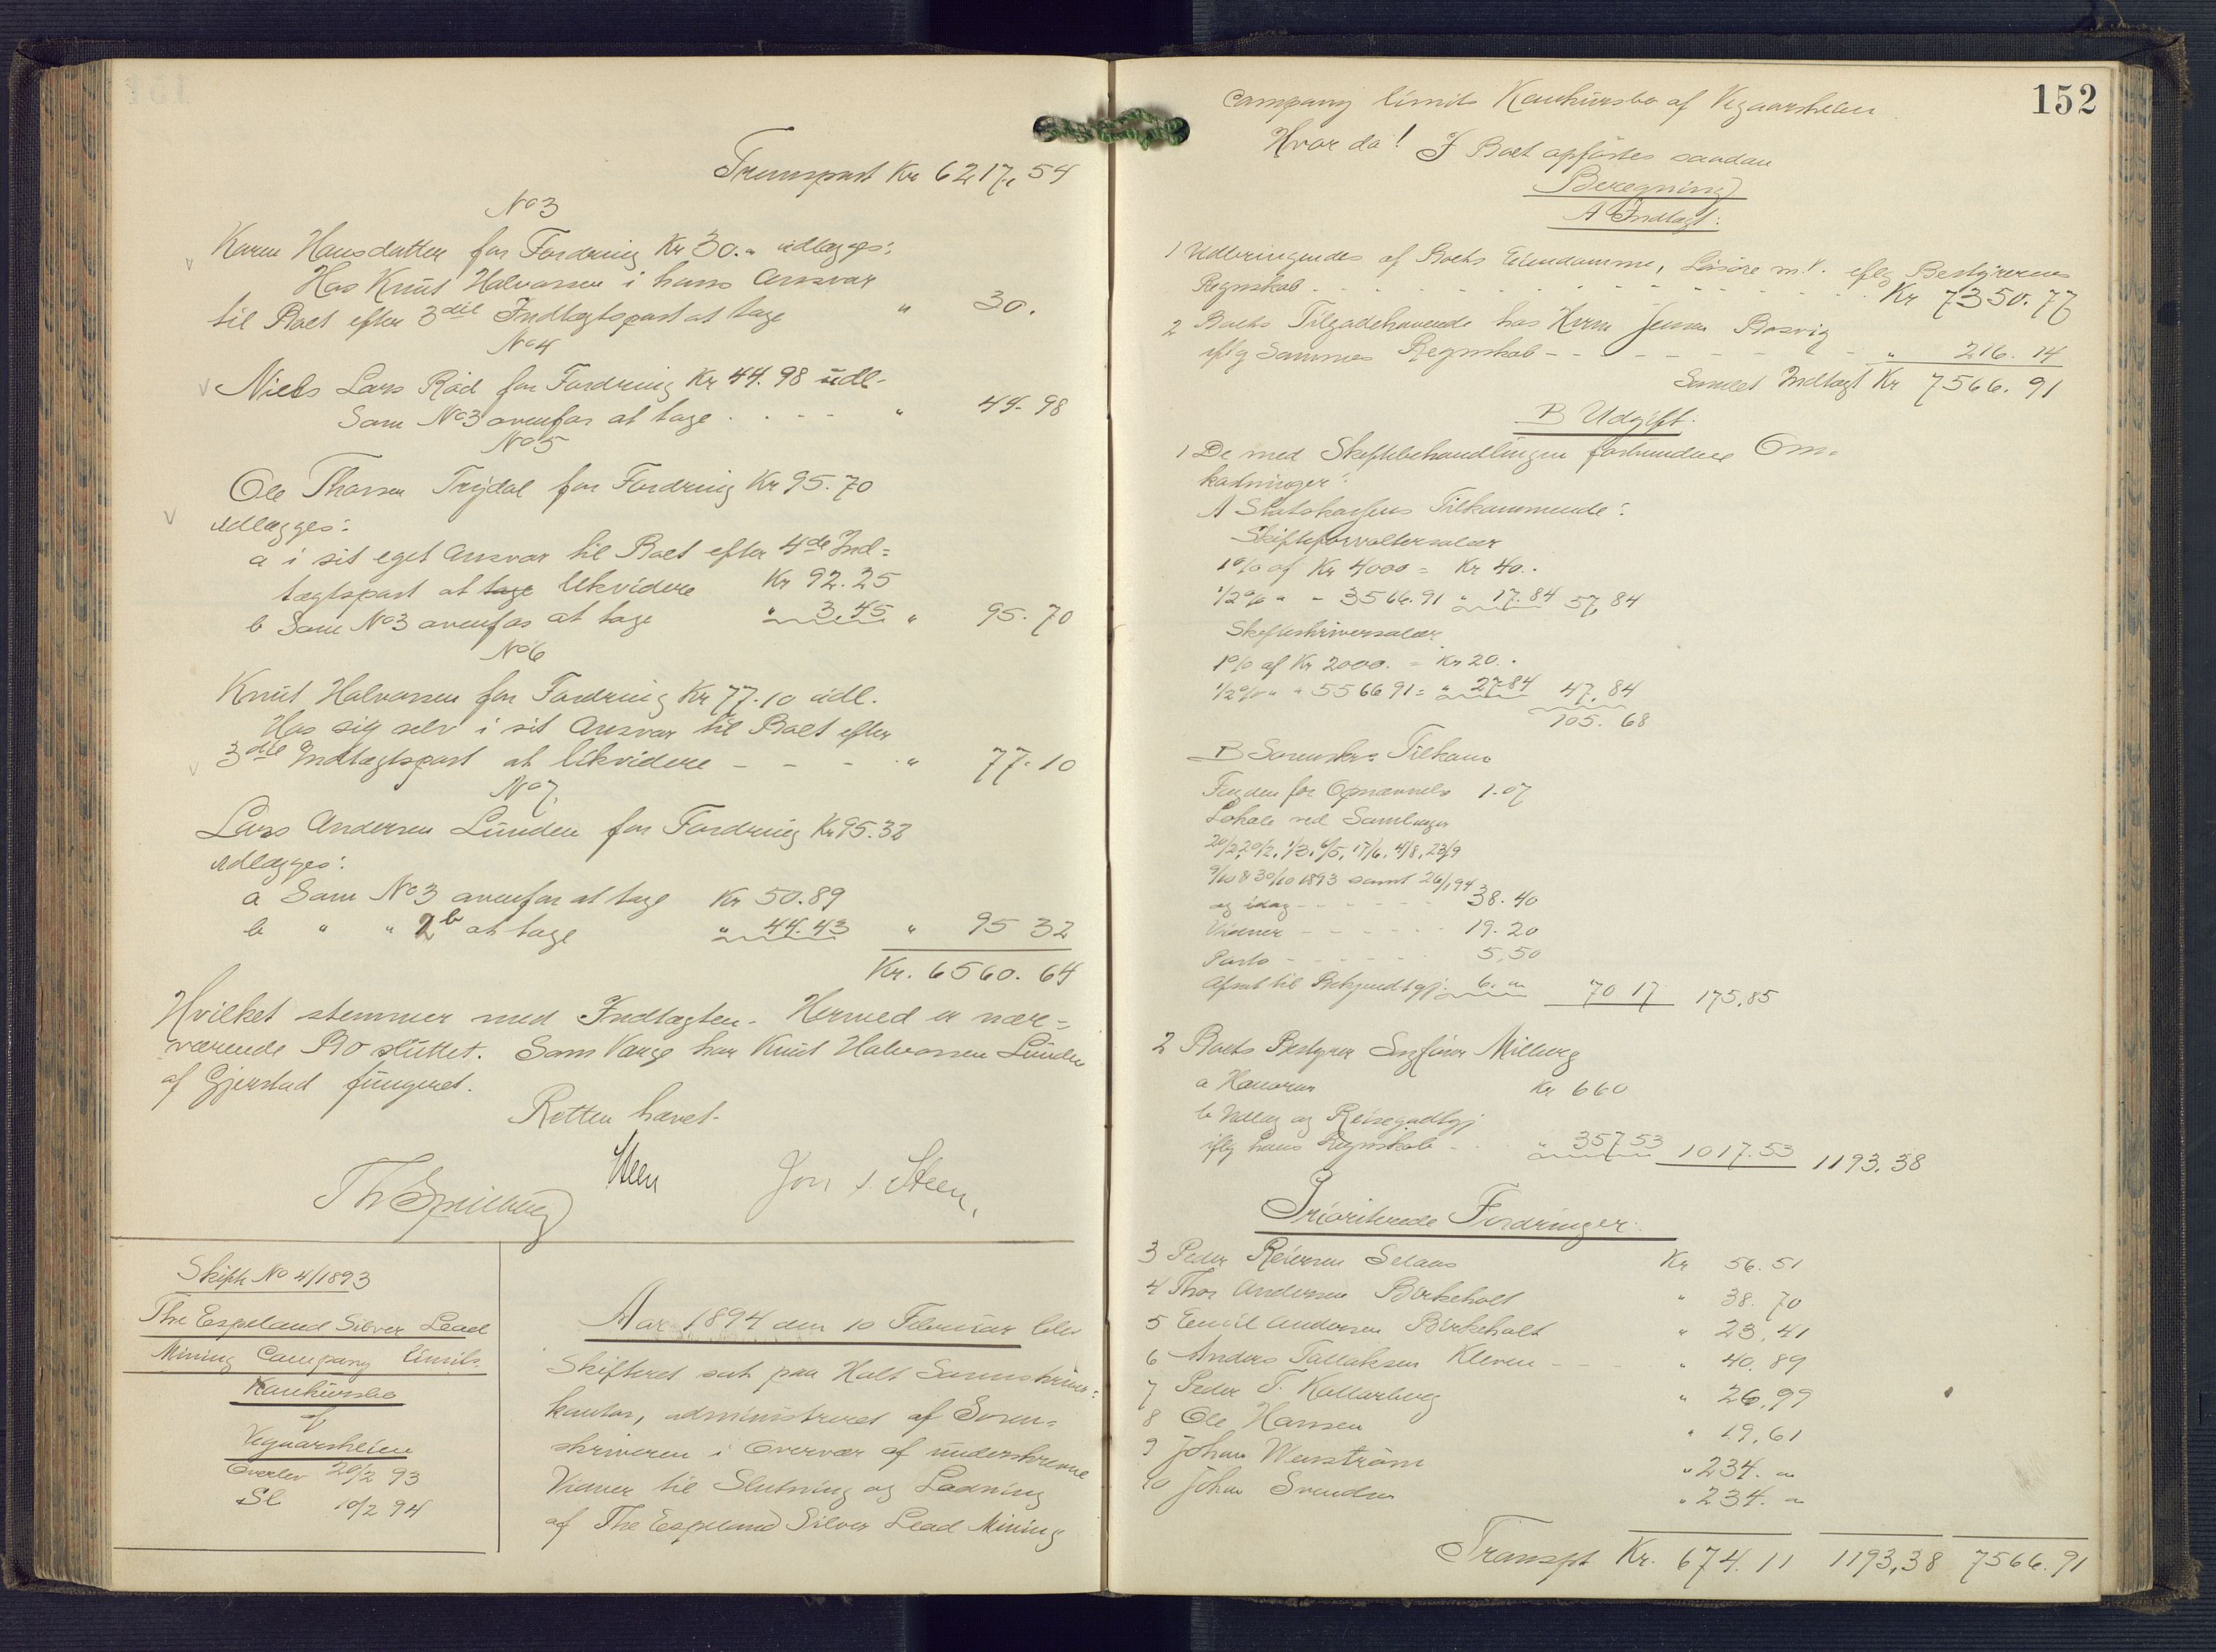 Transport Kr 6217,54
No 3
Karen Hansdatter for Fordring Kr 30.- udlægges:
Hos Knut Halvorsen i hans Ansvar
til Boet efter 3die Indtægtspost at tage " 30.
No 4
Niels Lars Röd for Fordring Kr 44.98 udl.
Som No 3 ovenfor at tage . . - - " 44.98
No 5
Ole Thorsen Trydal for Fordring Kr 95.70
udlægges:
a i sit eget Ansvar til Boet efter 4de Ind=
tægtspost at tage likvidere Kr 92.25
b Som No 3 ovenfor at tage " 3.45 " 95.70
No 6
Knut Halvorsen for Fordring Kr 77.10 udl.
Hos sig selv i sit Ansvar til Boet efter
3die Indtægtspost at likvidere - - - " 77.10
No 7
Lars Andersen Lunden for Fordring Kr 95.32
udlægges:
a Som No 3 ovenfor at tage Kr 50.89
b " " 2b at tage " 44.43 " 95 32
Kr. 6560.64
Hvilket stemmer med Indtægten. Hermed er nær=
værende Bo sluttet. Som Værge har Knut Halvorsen Lunden
af Gjerstad fungeret.
Retten hævet.
Steen
Jon S. Steen,
Skifte No 4/1893
The Espeland Silver Lead
Mining Company limits
Konkursbo
af
Vegaarsheien
Overlev 20/2 93
Sl 10/2 94
Aar 1894 den 10 Februar blev
Skifteret sat paa Holt Sorenskriver=
kontor, administreret af Soren=
skriveren i Overvær af underskrevne
Vidner til Slutning og Lodning
af The Espeland Silver Lead Mining
152
Company limits Konkursbo af Vegaarsheien
Hvor da! I Boet opförtes saadan
Beregning
A Indtægt:
1 Udbringendes af Boets Eiendomme, Lösöre m.v. iflg Bestyrerens
Regnskab - - - - Kr 7350.77
2 Boets Tilgodehavende hos Herm Jensen Bosvig
iflg Sammes Regnskab - - - - " 216.14
Samlet Indtægt Kr 7566.91
B Udgift.
1 De med Skiftebehandlingen forbundne Om=
kostninger:
A Statskassens Tilkommende:
Skifteforvaltersalær
1% af Kr 4000 = Kr 40.
1/2% " " 3566.91 " 17.84 57,84
Skifteskriversalær
1% af Kr 2000. = Kr 20.
1/2% " " 5566 91 = " 27.84 47.84
105.68
B Sorenskr. Tilkom
1.07
Lokale ved Samlinger
20/2, 20/2, 1/3, 6/5, 17/6, 4/8, 23/9
9/10 & 30/10 1893 samt 26/1 94
og idag - - - 38.40
Vidner - - - 19.20
Porto - - - 5,50
Afsat til Bekjendtgj. 6. " 70 17 175,85
2 Boets Bestyrer Milberg
a Honorar Kr 660
b Udlæg og Reisegodtgj
iflg hans Regnskab - " 357.53 1017.53 1193,38
Prioriterede Fordringer:
3 Peder Reiersen Selaas Kr 56.51
4 Thor Andersen Birkeholt " 38.70
5 Emil Andersen Birkeholt " 23,41
6 Anders Tallaksen Kleven - - " 40.89
7 Peder T. Kollarberg " 26,99
8 Ole Hansen " 19,61
9 Johan Wenström " 234. "
10 Johan Svendsen " 234. "
Transpt Kr. 674.11 1193,38 7566.91